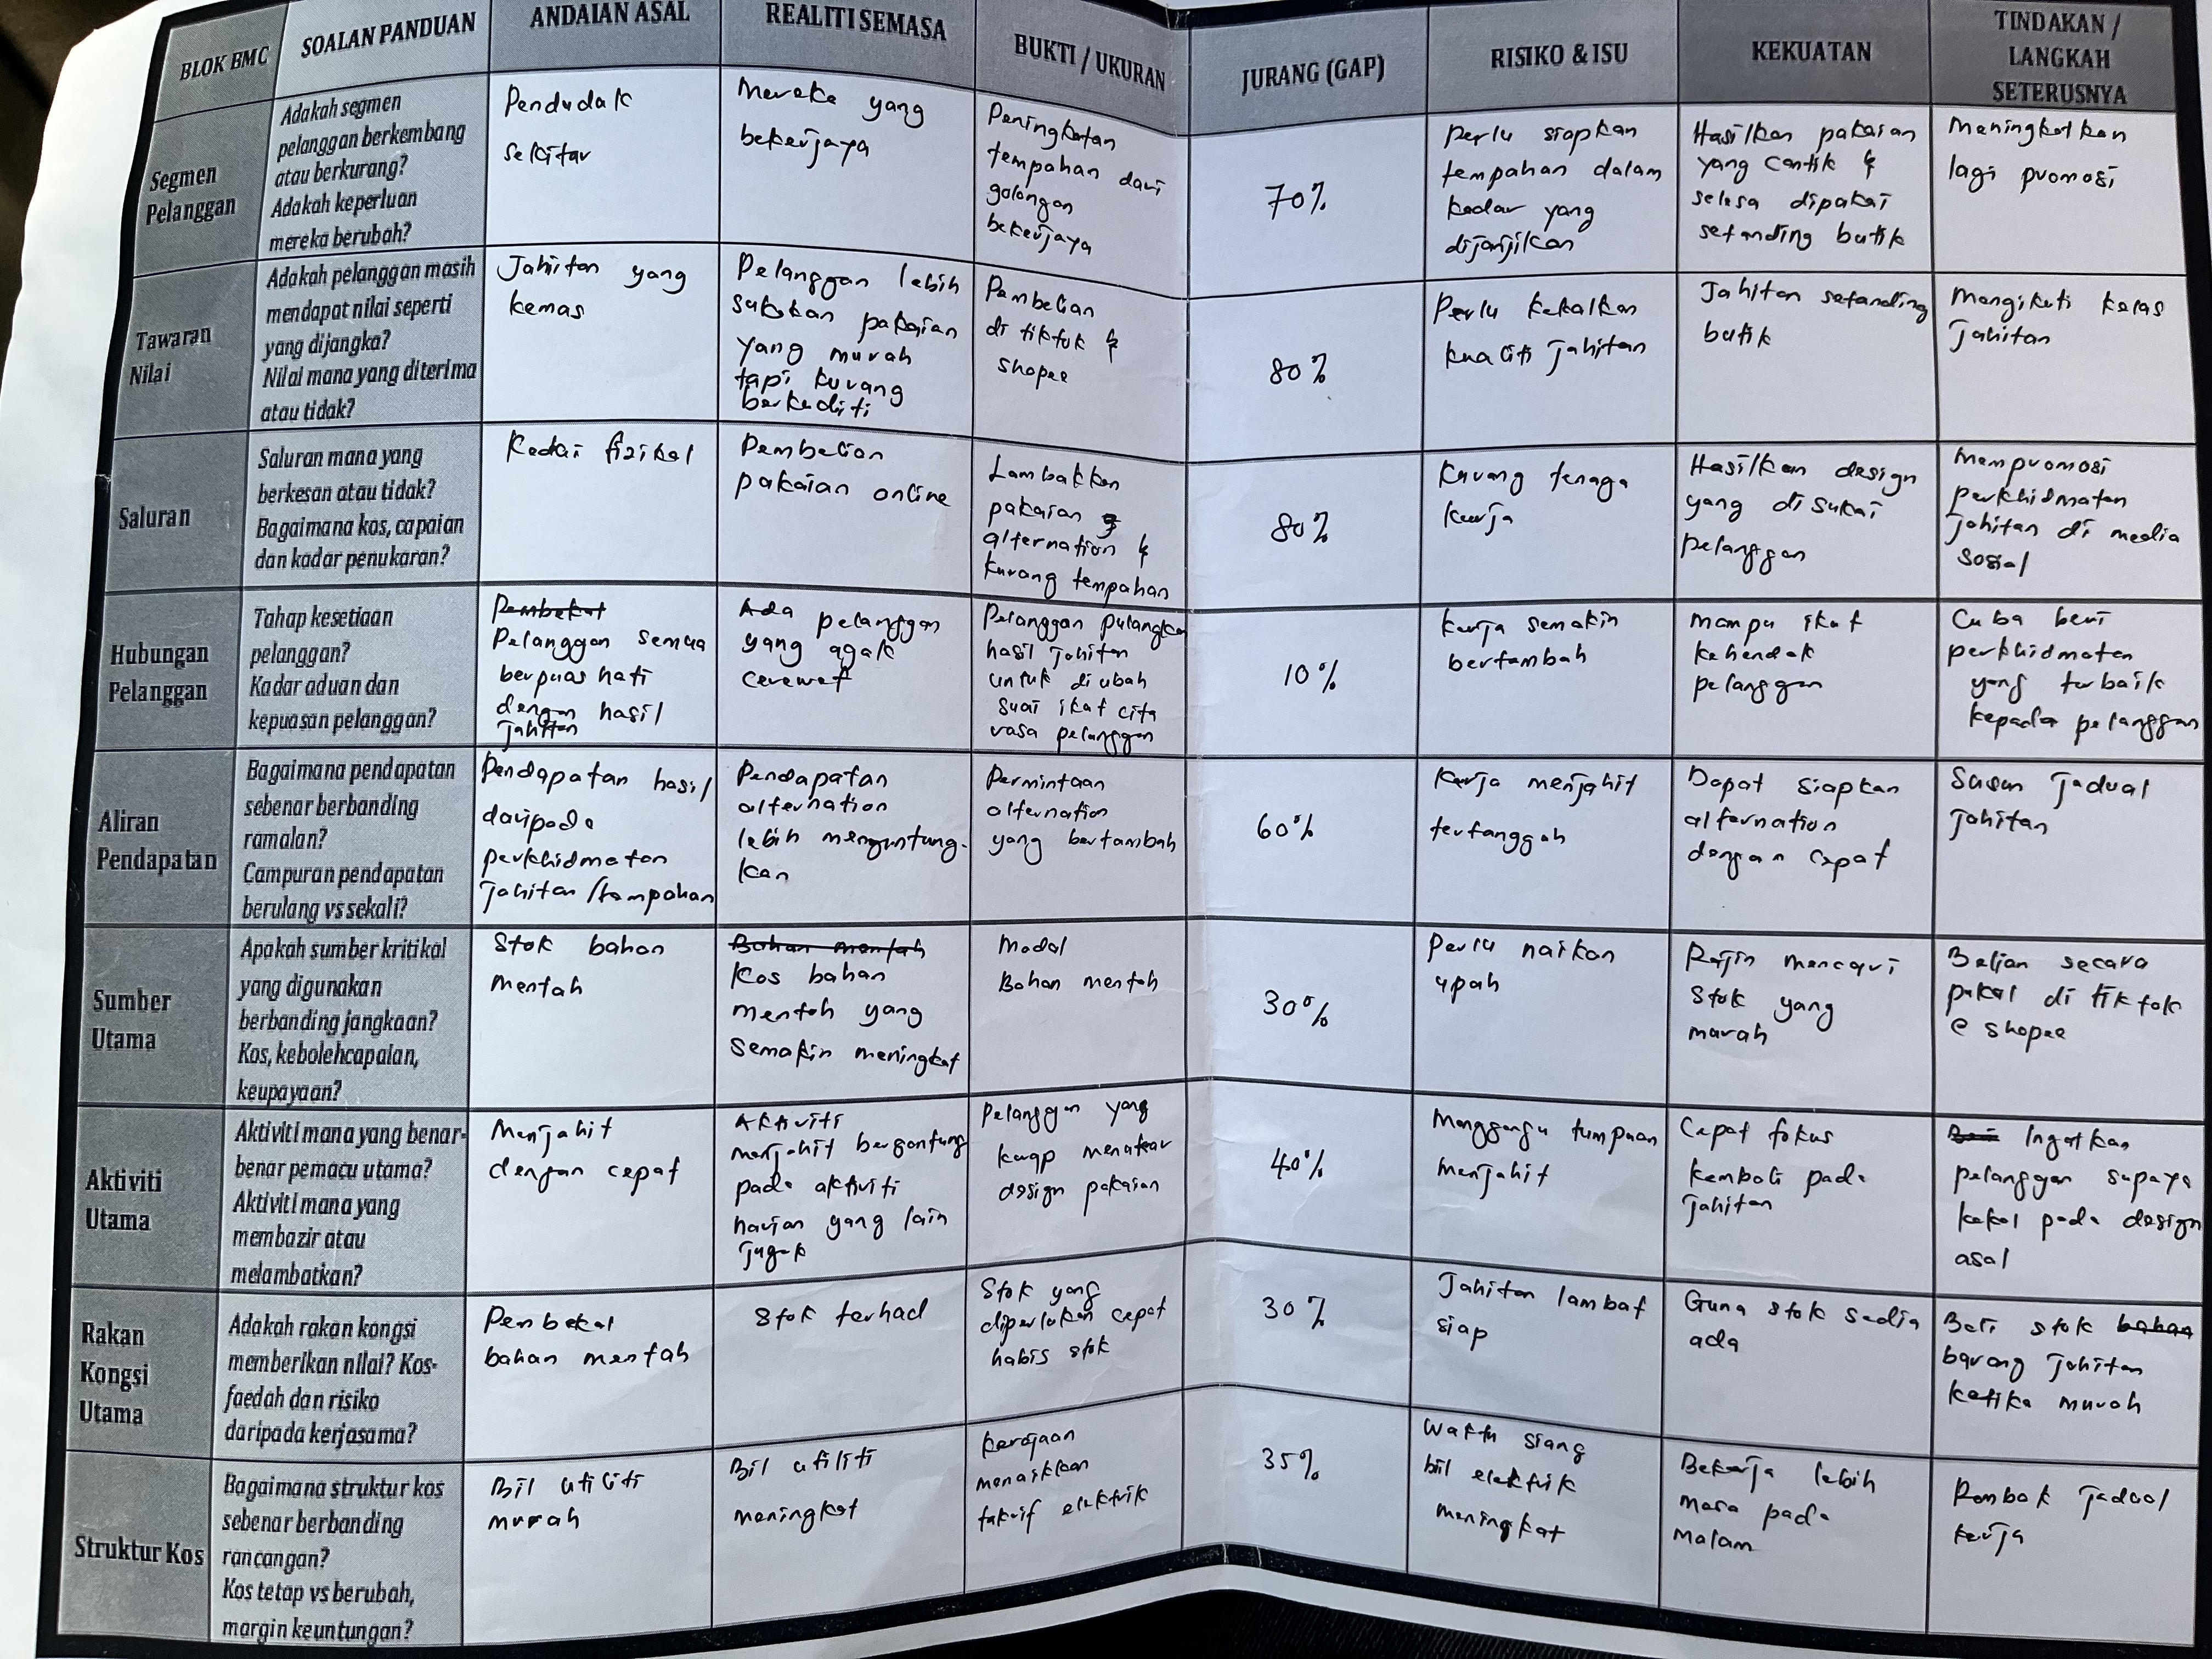 BLOK BMC
SOALAN PANDUAN
ANDAIAN ASAL
REALITI SEMASA
BUKTI / UKURAN
JURANG (GAP)
RISIKO & ISU
KEKUATAN
TINDAKAN /
LANGKAH
SETERUSNYA
Segmen
Pelanggan
Adakah segmen
pelanggan berkembang
atau berkurang?
Adakah keperluan
mereka berubah?
Penduduk
sekitar
Mereka yang
bekerjaya
Peningkatan
tempahan dari
golongan
bekerjaya
70%
Perlu siapkan
tempahan dalam
kadar yang
dijanjikan
Hasilkan pakaian
yang cantik &
selesa dipakai
setanding butik
Meningkatkan
lagi promosi
Tawaran
Nilai
Adakah pelanggan masih
mendapat nilai seperti
yang dijangka?
Nilai mana yang diterima
atau tidak?
Jahitan yang
kemas
Pelanggan lebih
sukakan pakaian
yang murah
tapi kurang
berkualiti
Pembelian
di tiktok &
shopee
80%
Perlu kekalkan
kualiti jahitan
Jahitan setanding
butik
Mengikuti kelas
jahitan
Saluran
Saluran mana yang
berkesan atau tidak?
Bagaimana kos, capaian
dan kadar penukaran?
Kedai fizikal
Pembelian
pakaian online
Lambakkan
pakaian
alternation &
kurang tempahan
80%
Kurang tenaga
kerja
Hasilkan design
yang disukai
pelanggan
Mempromosi
perkhidmatan
jahitan di media
sosial
Hubungan
Pelanggan
Tahap kesetiaan
pelanggan?
Kadar aduan dan
kepuasan pelanggan?
Pembekal
Pelanggan semua
berpuas hati
dengan hasil
jahitan
Ada pelanggan
yang agak
cerewet
Pelanggan pulangkan
hasil jahitan
untuk diubah
suai ikut cita
rasa pelanggan
10%
Kerja semakin
bertambah
Mampu ikut
kehendak
pelanggan
Cuba beri
perkhidmatan
yang terbaik
kepada pelanggan
Aliran
Pendapatan
Bagaimana pendapatan
sebenar berbanding
ramalan?
Campuran pendapatan
berulang vs sekali?
Pendapatan hasil
daripada
perkhidmatan
jahitan / tempahan
Pendapatan
alternation
lebih menguntung-
kan
Permintaan
alternation
yang bertambah
60%
Kerja menjahit
tertangguh
Dapat siapkan
alternation
dengan cepat
Susun jadual
jahitan
Sumber
Utama
Apakah sumber kritikal
yang digunakan
berbanding jangkaan?
Kos, kebolehcapaian,
keupayaan?
Stok bahan
mentah
Bahan mentah
Kos bahan
mentah yang
semakin meningkat
Modal
Bahan mentah
30%
Perlu naikan
upah
Rajin mencari
stok yang
murah
Belian secara
pukal di tiktok
@ shopee
Aktiviti
Utama
Aktiviti mana yang benar-
benar pemacu utama?
Aktiviti mana yang
membazir atau
melambatkan?
Menjahit
dengan cepat
Aktiviti
menjahit bergantung
pada aktiviti
harian yang lain
jugak
Pelanggan yang
kerap menukar
design pakaian
40%
Mengganggu tumpuan
menjahit
Cepat fokus
kembali pada
jahitan
Ingatkan
pelanggan supaya
kekal pada design
asal
Rakan
Kongsi
Utama
Adakah rakan kongsi
memberikan nilai? Kos-
faedah dan risiko
daripada kerjasama?
Pembekal
bahan mentah
Stok terhad
Stok yang
diperlukan cepat
habis stok
30%
Jahitan lambat
siap
Guna stok sedia
ada
Beli stok bahan
barang jahitan
ketika murah
Struktur Kos
Bagaimana struktur kos
sebenar berbanding
rancangan?
Kos tetap vs berubah,
margin keuntungan?
Bil utiliti
murah
Bil utiliti
meningkat
Kerajaan
menaikkan
taktif elektrik
35%
Waktu siang
bil elektrik
meningkat
Bekerja lebih
masa pada
malam
Rombak jadual
kerja